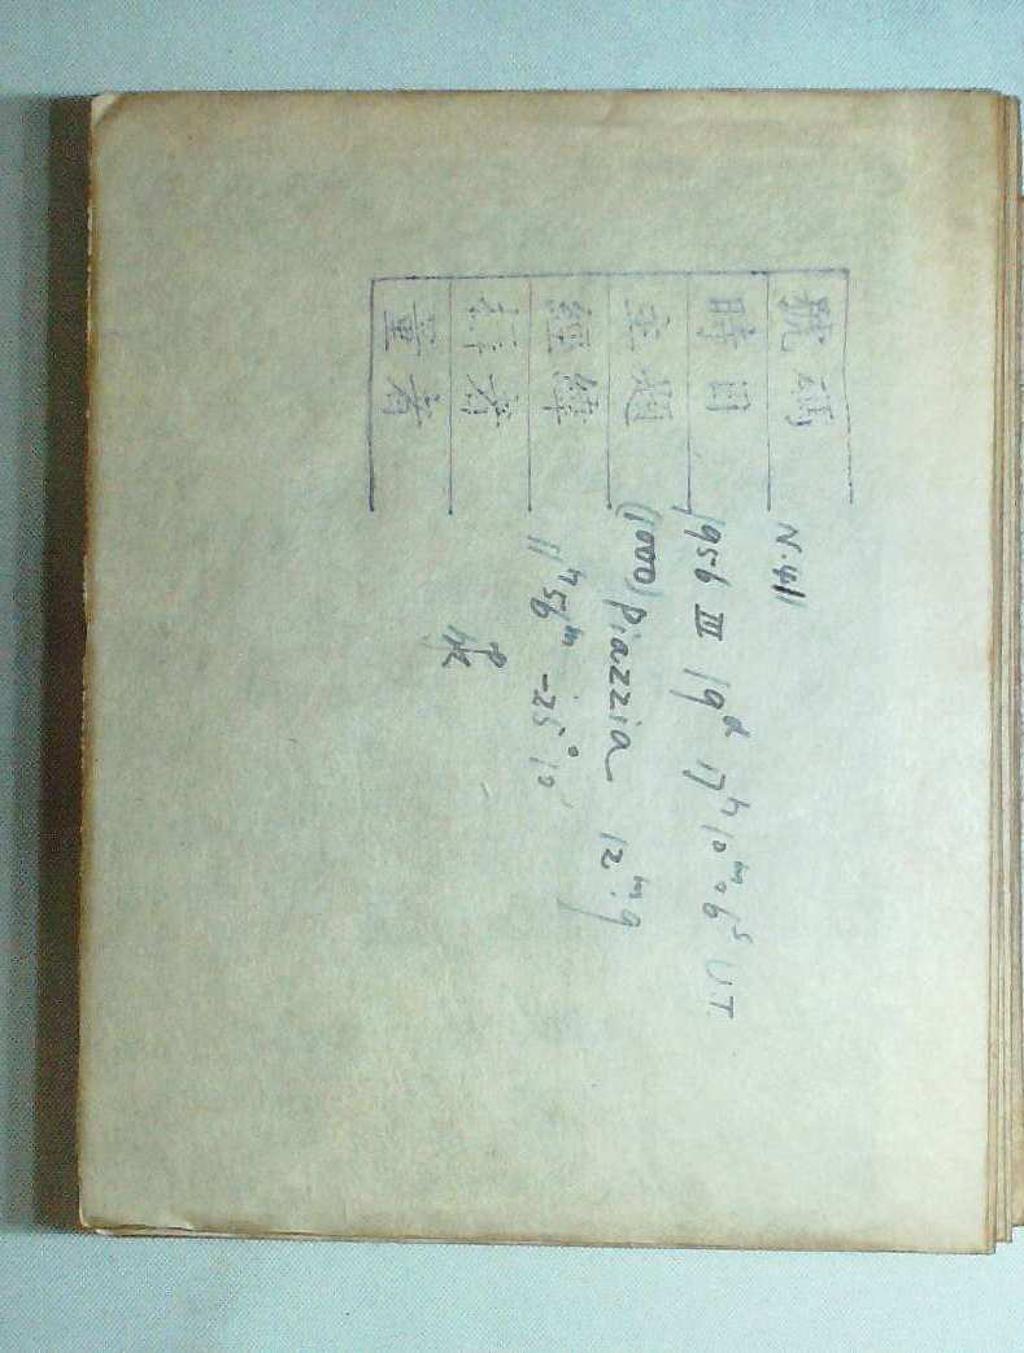 號碼 N.411
時日 1956 III 19ᵈ 17ʰ 10ᵐ.06ˢ UT
主題 (1000) Piazzia 12ᵐ.9
經緯 11ʰ 56ᵐ -25°.10'
量者